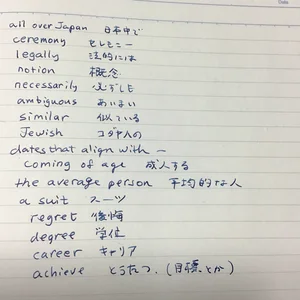 all over Japan 日本中で
ceremony セレモニー
legally 法的には
notion 概念
necessarily 必ずしも
ambiguous あいまい
similar 似ている
Jewish ユダヤ人の
dates that align with ―
coming of age 成人する
the average person 平均的な人
a suit スーツ
regret 後悔
degree 学位
career キャリア
achieve とうたつ、(目標とか)